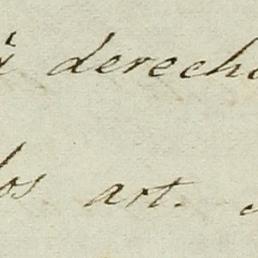 à derech
los art.